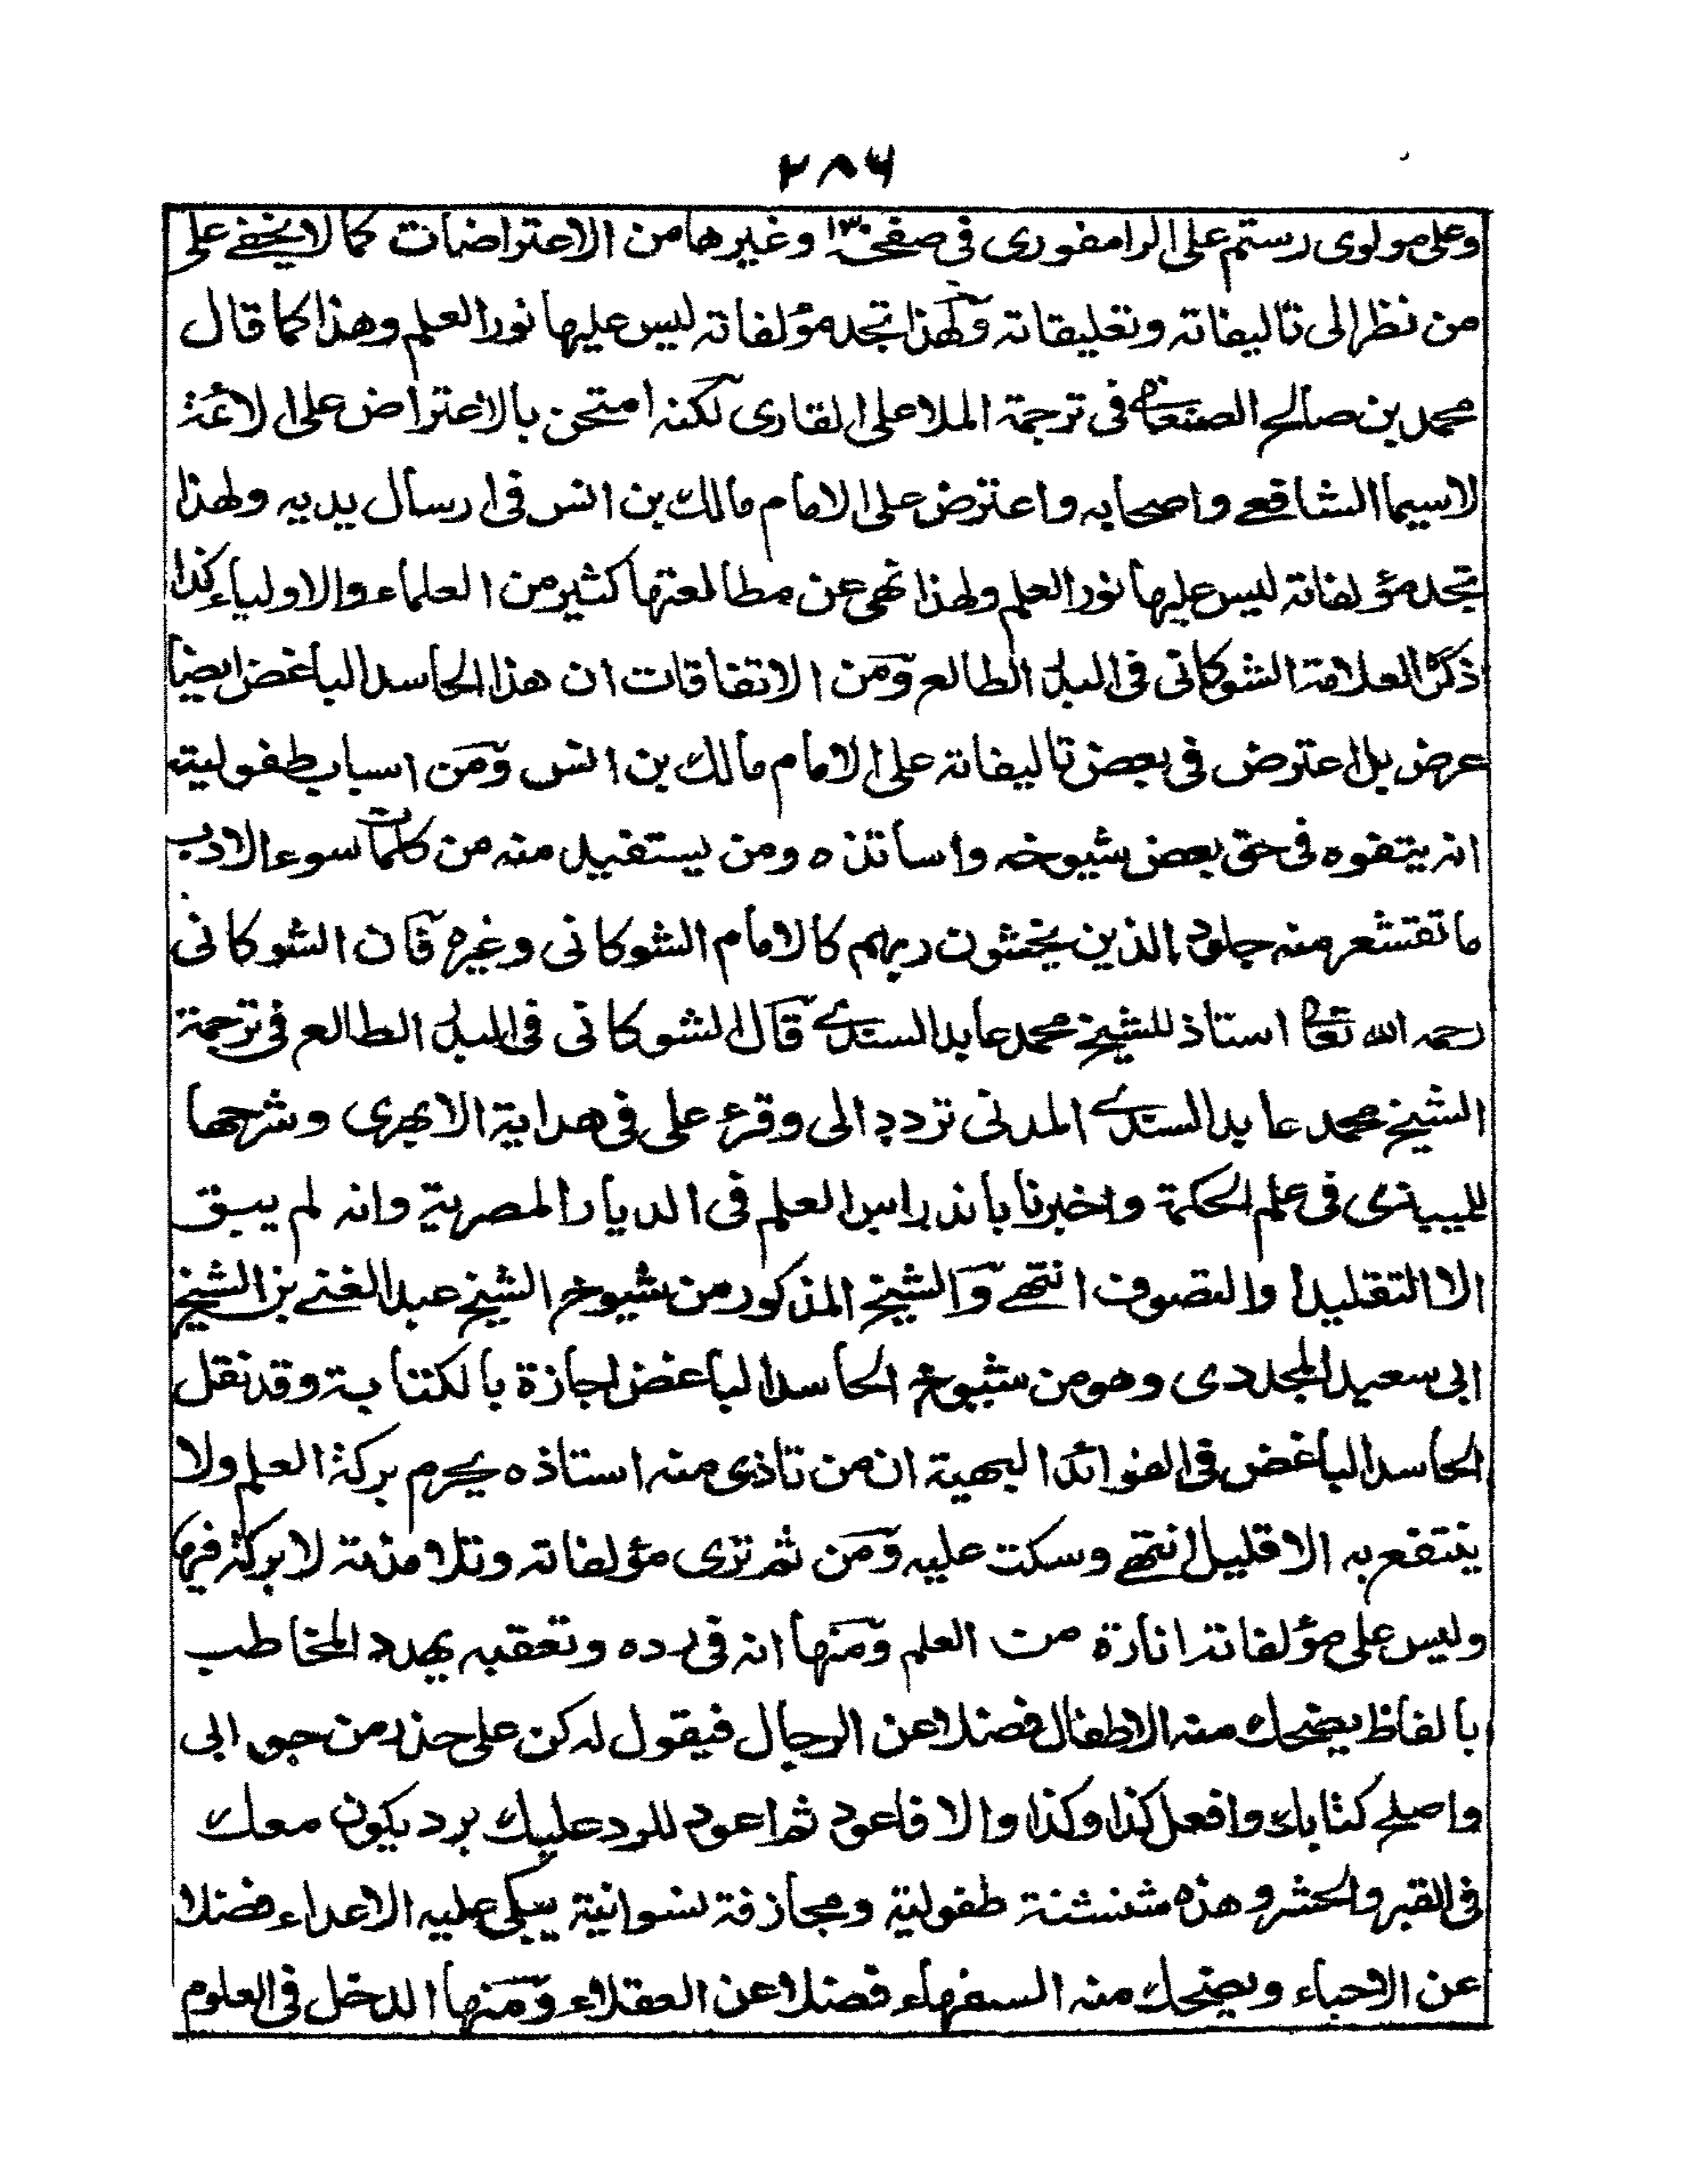 ٢٨٦
وعلى مولوى رستم على الرامفورى فى صفحه ١٣٠ وغيرها من الاعتراضات كما لا يخفے على
من نظر الى تاليفاته وتعليقاته ولهذا تجد مؤلفاته ليس عليها نور العلم وهذا كما قال
محمد بن صالح الصنعانے فى ترجمة الملا على القارى لكنه امتحن بالاعتراض على الائمة
لاسيما الشافعے واصحابه واعترض على الامام مالك بن انس فى ارسال يديه ولهذا
تجد مؤلفاته ليس عليها نور العلم ولهذا نهى عن مطالعتها كثير من العلماء والاولياء كذا
ذكره العلامة الشوكانى فى البدر الطالع ومن الاتفاقات ان هذا الحاسد الباغض ايضا
عرض بل اعترض فى بعض تاليفاته على الامام مالك بن انس ومن اسباب طفوليته
انه يتفوه فى حق بعض شيوخه واساتذه ومن يستفيد منه من كلمات سوء الادب
ما تقشعر منه جلود الذين يخشون ربهم كالامام الشوكانى وغيره فان الشوكانى
رحمه الله تعالى استاذ للشيخ محمد عابد السندے قال الشوكانى فى البدر الطالع فى ترجمة
الشيخ محمد عابد السندے المدنى تردد الى وقرء على فى هداية الابهرى وشرحها
للميبذى فى علم الحكمة واخبرنا باندراس العلم فى الديار المصرية وانه لم يبق
الا التقليد او التصوف انتهے والشيخ المذكور من شيوخ الشيخ عبد الغنے بن الشيخ
ابى سعيد المجددى وهو من شيوخ الحاسد الباغض اجازة بالكتابة وقد نقل
الحاسد الباغض فى الفوائد البهية ان من تاذى منه استاذه يحرم بركة العلم ولا
ينتفع به الا قليل انتهے وسكت عليه ومن ثم ترى مؤلفاته وتلامذته لا بركة فيها
وليس على مؤلفاته انارة من العلم ومنها انه فى رده وتعقبه يهدد المخاطب
بالفاظ يضحك منه الاطفال فضلا عن الرجال فيقول له كن على حذر من جوابى
واصلح كتابك وافعل كذا وكذا والا فاعود ثم اعود للرد عليك برد يكون معك
فى القبر والحشر وهذه شنشنة طفولية ومجازفة نسوانية يبكى عليه الاعداء فضلا
عن الاحباء ويضحك منه السفهاء فضلا عن العقلاء ومنها الدخل فى العلوم